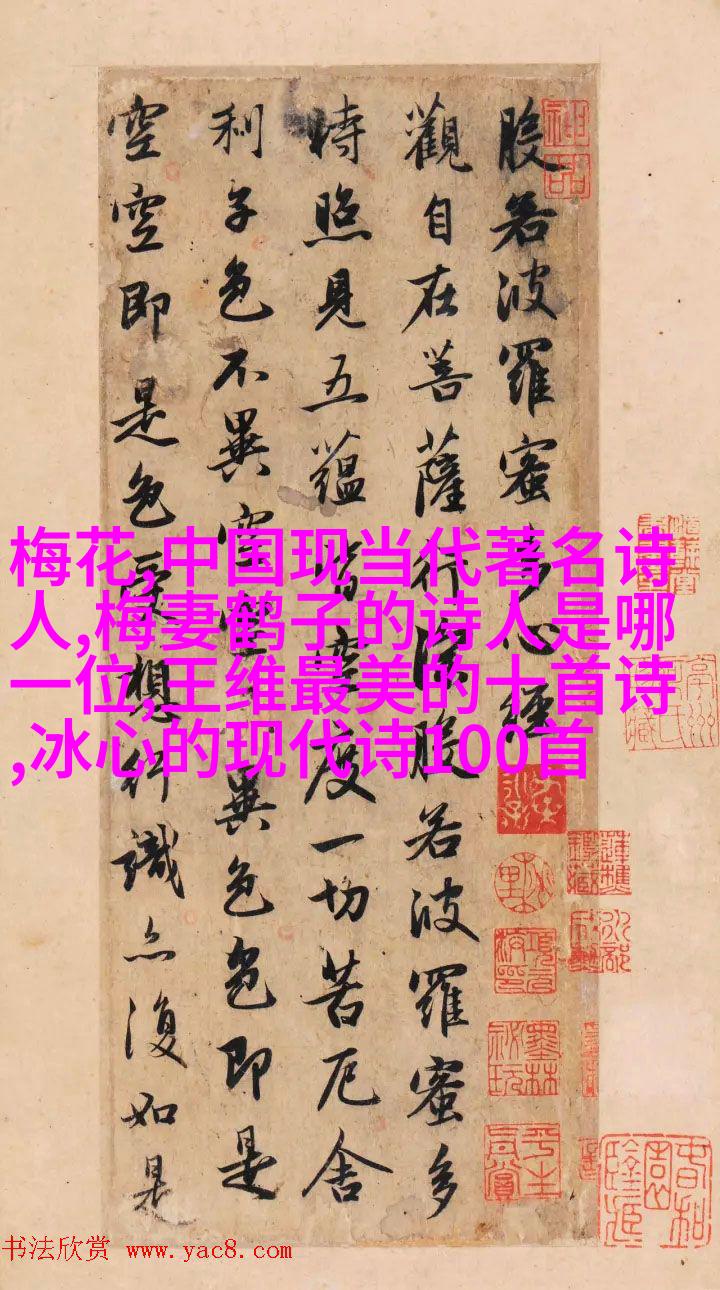 般若波羅蜜多心經
觀自在菩薩行深般若波羅蜜多
時照見五蘊皆空度一切苦厄舍
利子色不異空空不異色色即是
空空即是色受想行識亦復如是
梅花,中国现当代著名诗
人,梅妻鹤子的诗人是哪
一位,王维最美的十首诗
,冰心的现代诗100首
神品
墨林祕玩
书法欣赏 www.yac8.com